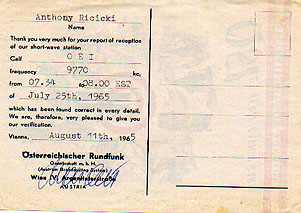 Anthony Ricicki
Name
Thank you very much for your report of reception
of our short-wave station
Call O E I
frequency 9770 kc,
from 07.34 to 08.00 EST
of July 25th, 1965
which has been found correct in every detail.
We are, therefore, very pleased to give you
our verification.
Vienna, August 11th, 1965
Österreichischer Rundfunk
Gesellschaft m. b. H.
(Austrian Broadcasting System)
Wien IV, Argentinierstraße
AUSTRIA